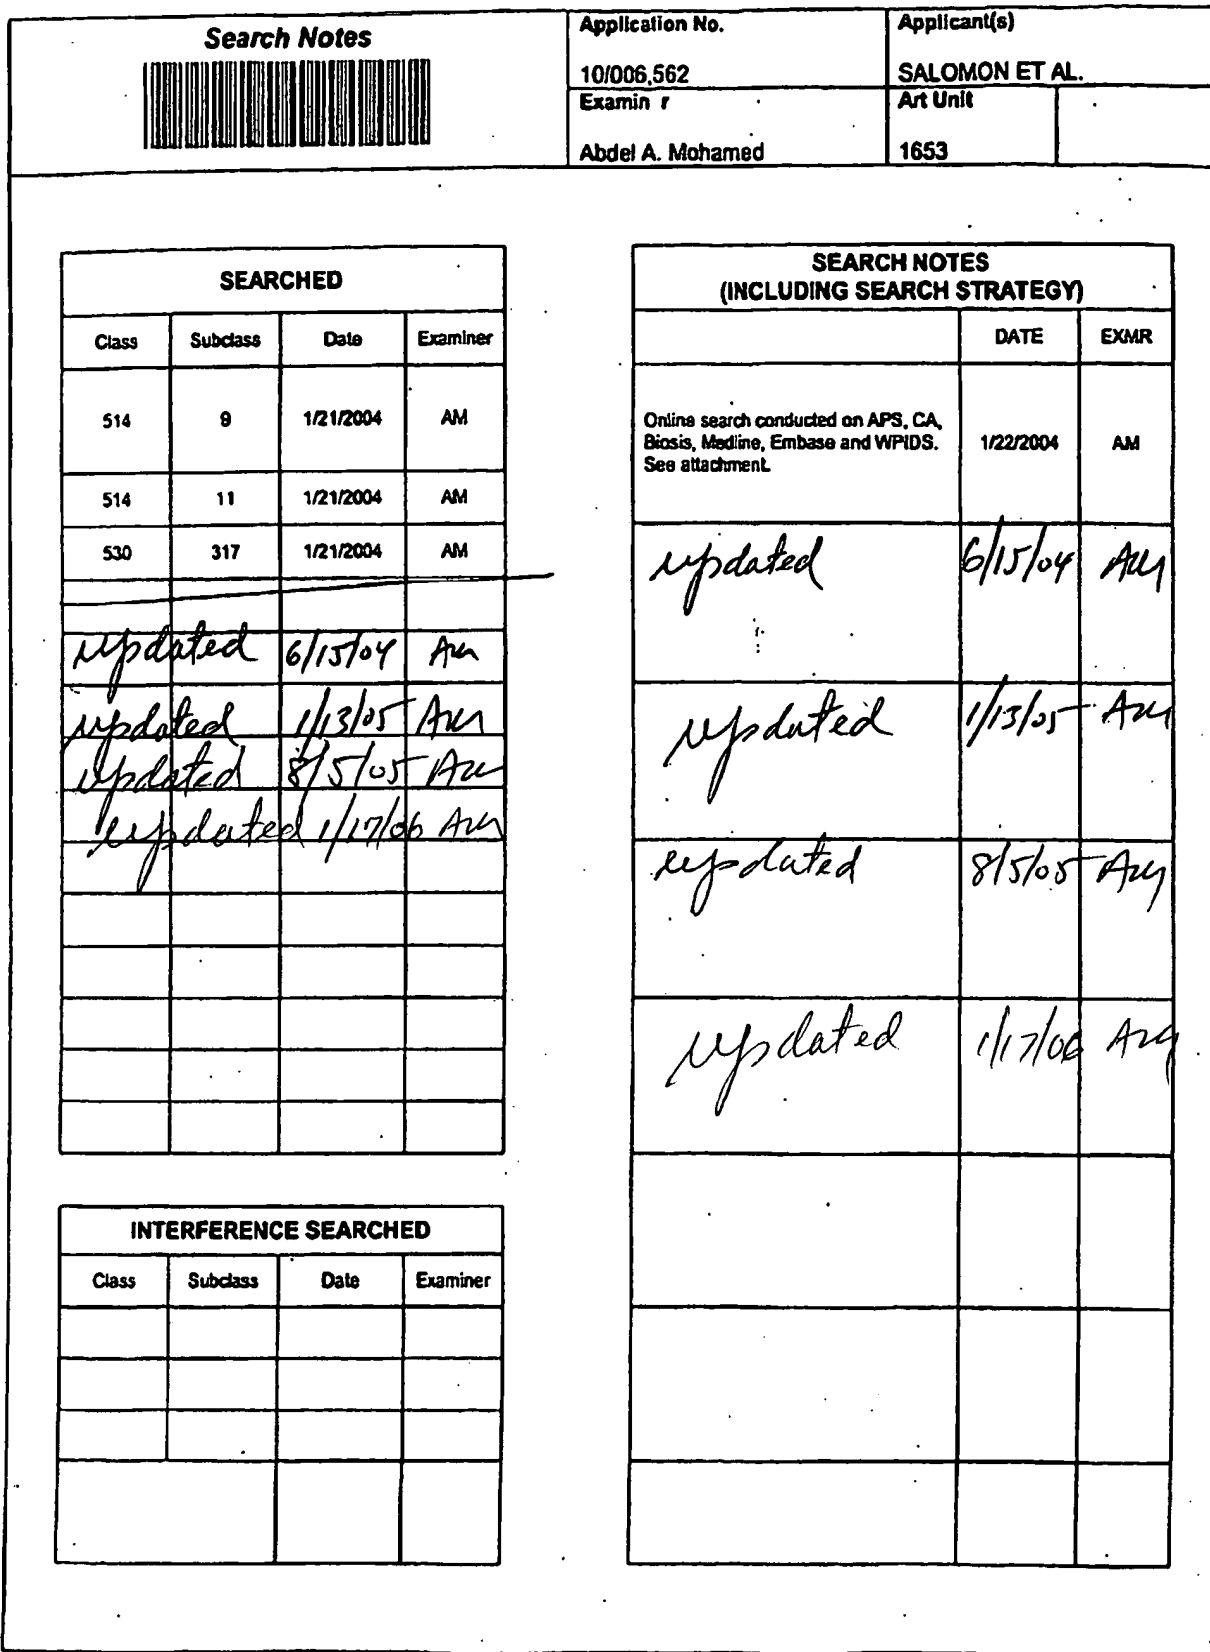 Search Notes
Application No.
Applicant(s)
10/006,562
SALOMON ET AL.
Examin r
Art Unit
Abdel A. Mohamed
1653
SEARCHED
Class Subclass Date Examiner
514 9 1/21/2004 AM
514 11 1/21/2004 AM
530 317 1/21/2004 AM
updated 6/15/04 AM
updated 1/13/05 AM
updated 8/5/05 AM
updated 1/17/06 AM
INTERFERENCE SEARCHED
Class Subclass Date Examiner
SEARCH NOTES
(INCLUDING SEARCH STRATEGY)
DATE EXMR
Online search conducted on APS, CA,
Biosis, Medline, Embase and WPIDS. 1/22/2004 AM
See attachment.
updated 6/15/04 AM
updated 1/13/05 AM
updated 8/5/05 AM
updated 1/17/06 AM